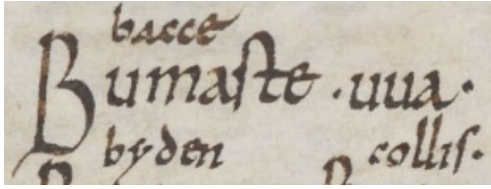 bacce
Bumaste · uua ·
byden collis·